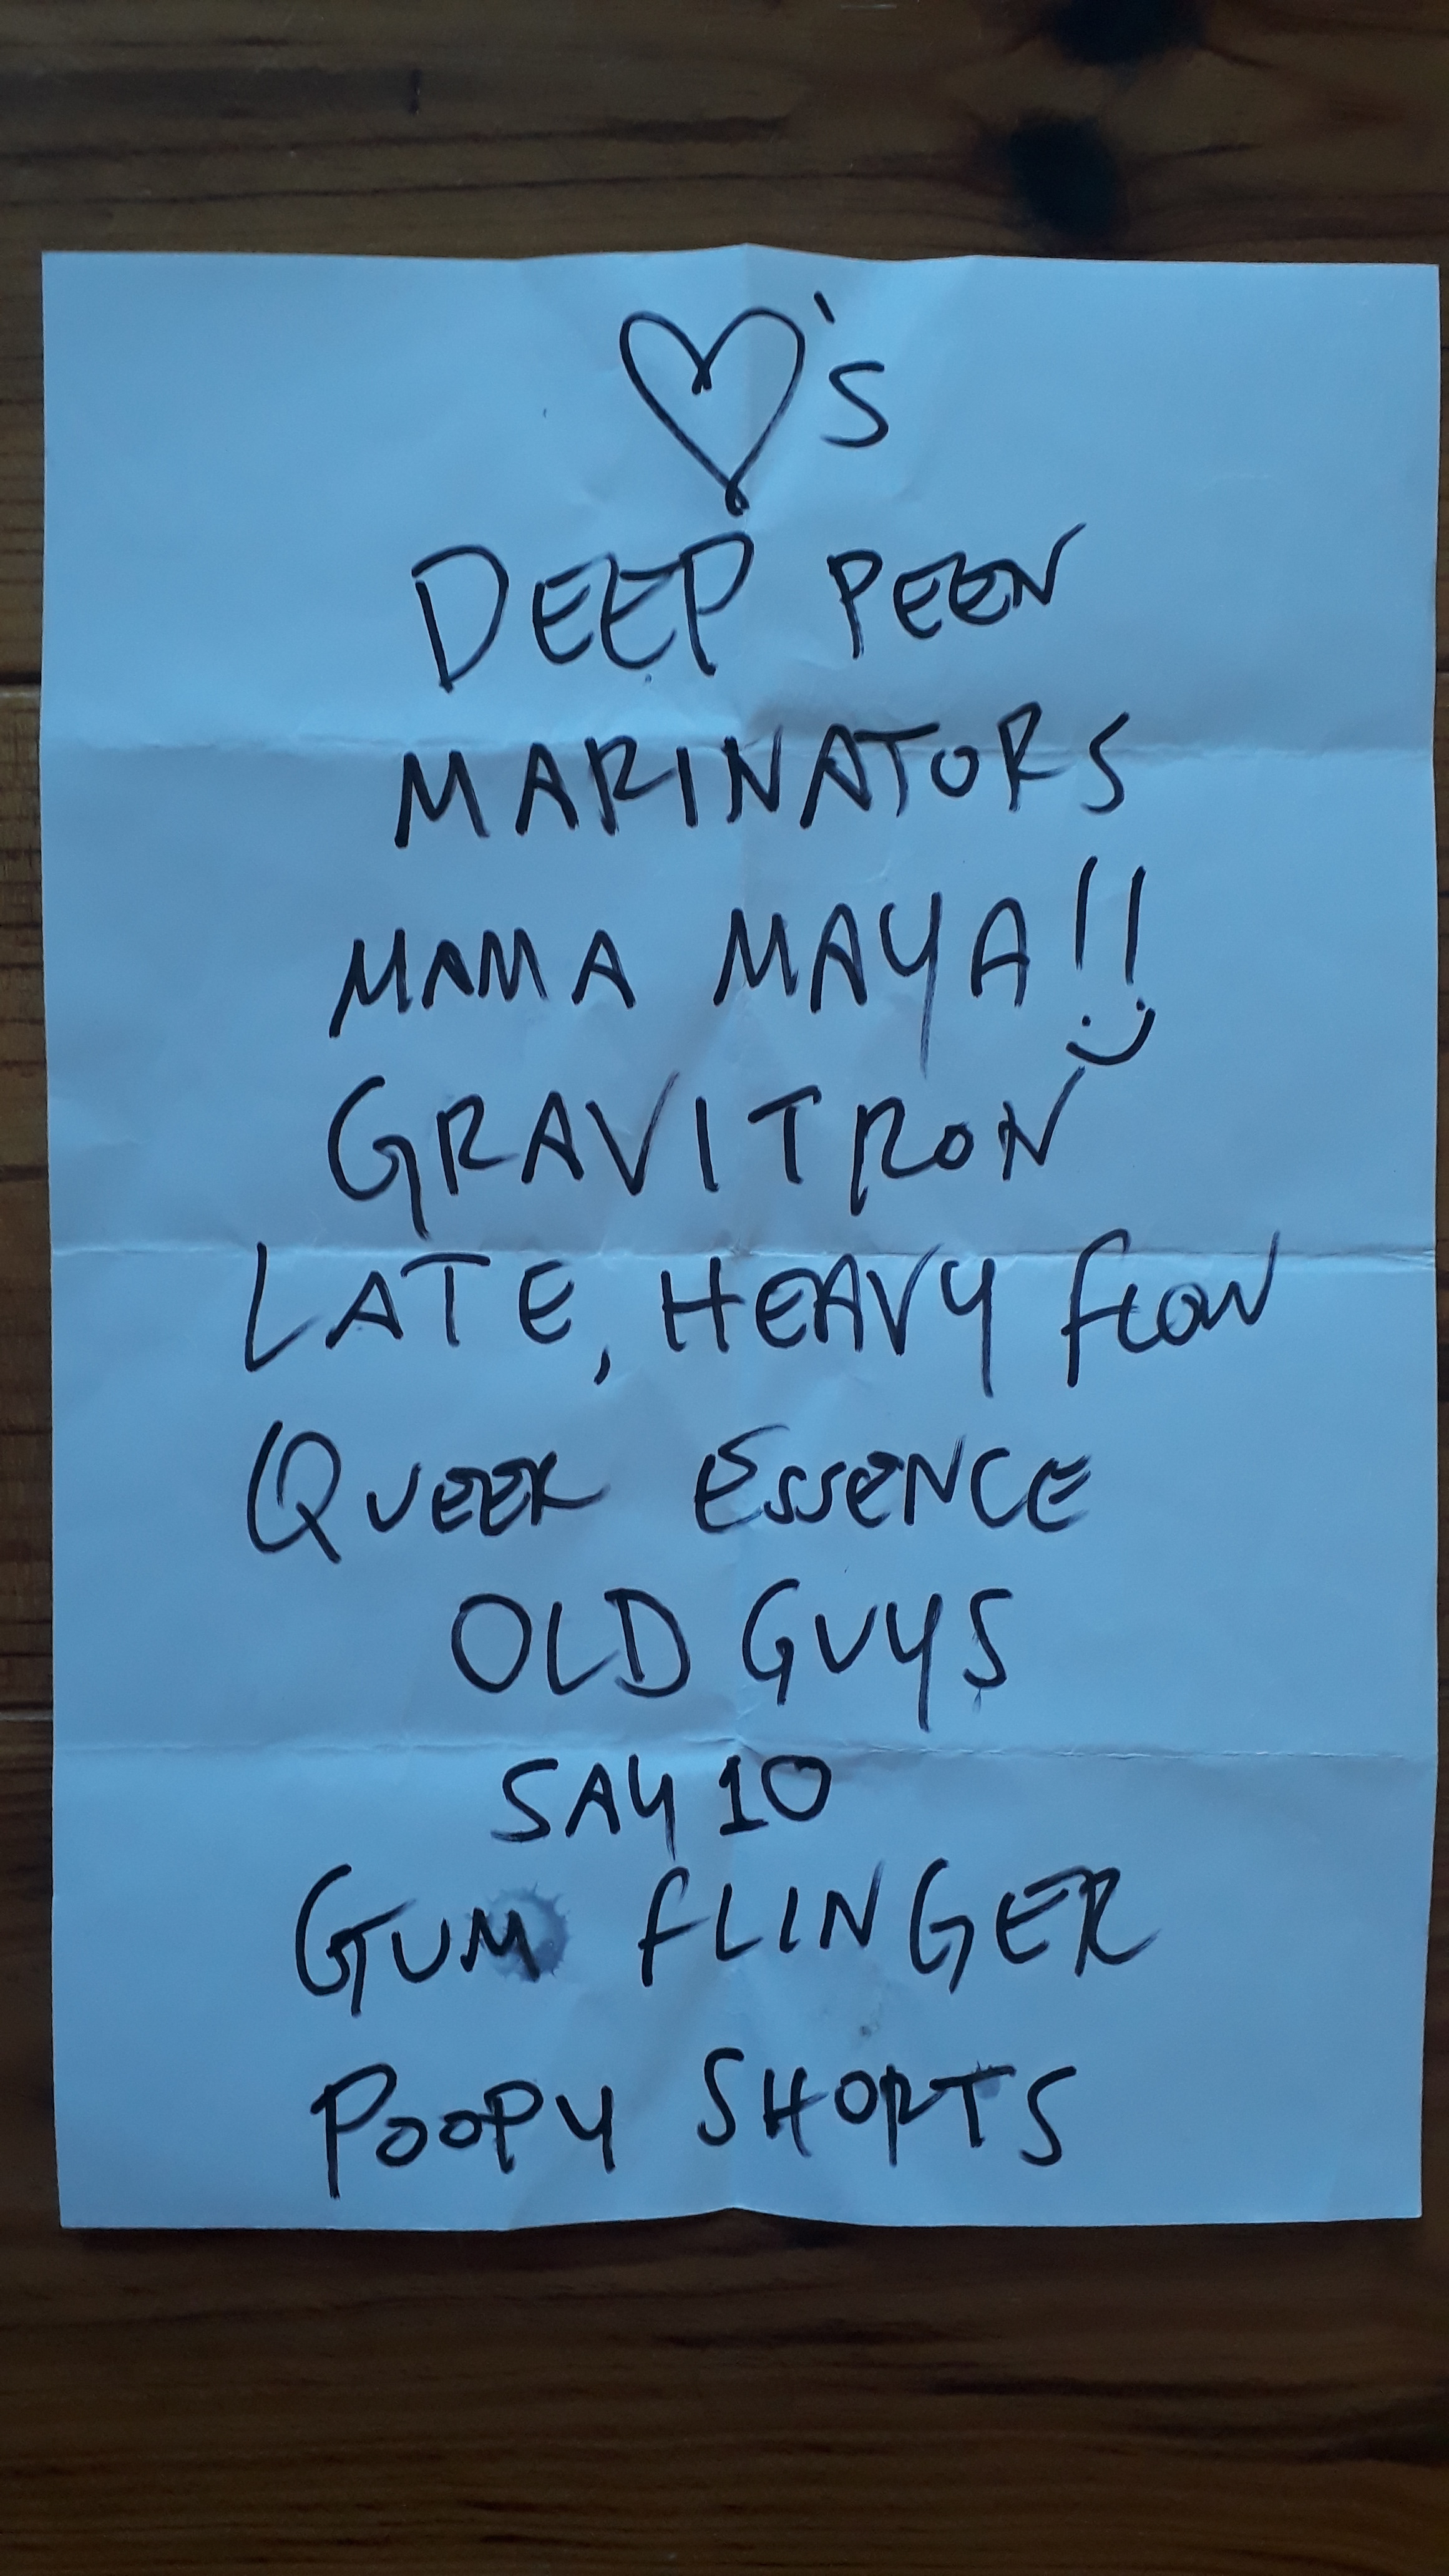 ♡'s
DEEP PEEN
MARINATORS
MAMA MAYA!!
GRAVITRON
LATE, HEAVY FLOW
QUEER ESSENCE
OLD GUYS
SAY 10
GUM FLINGER
POOPY SHORTS